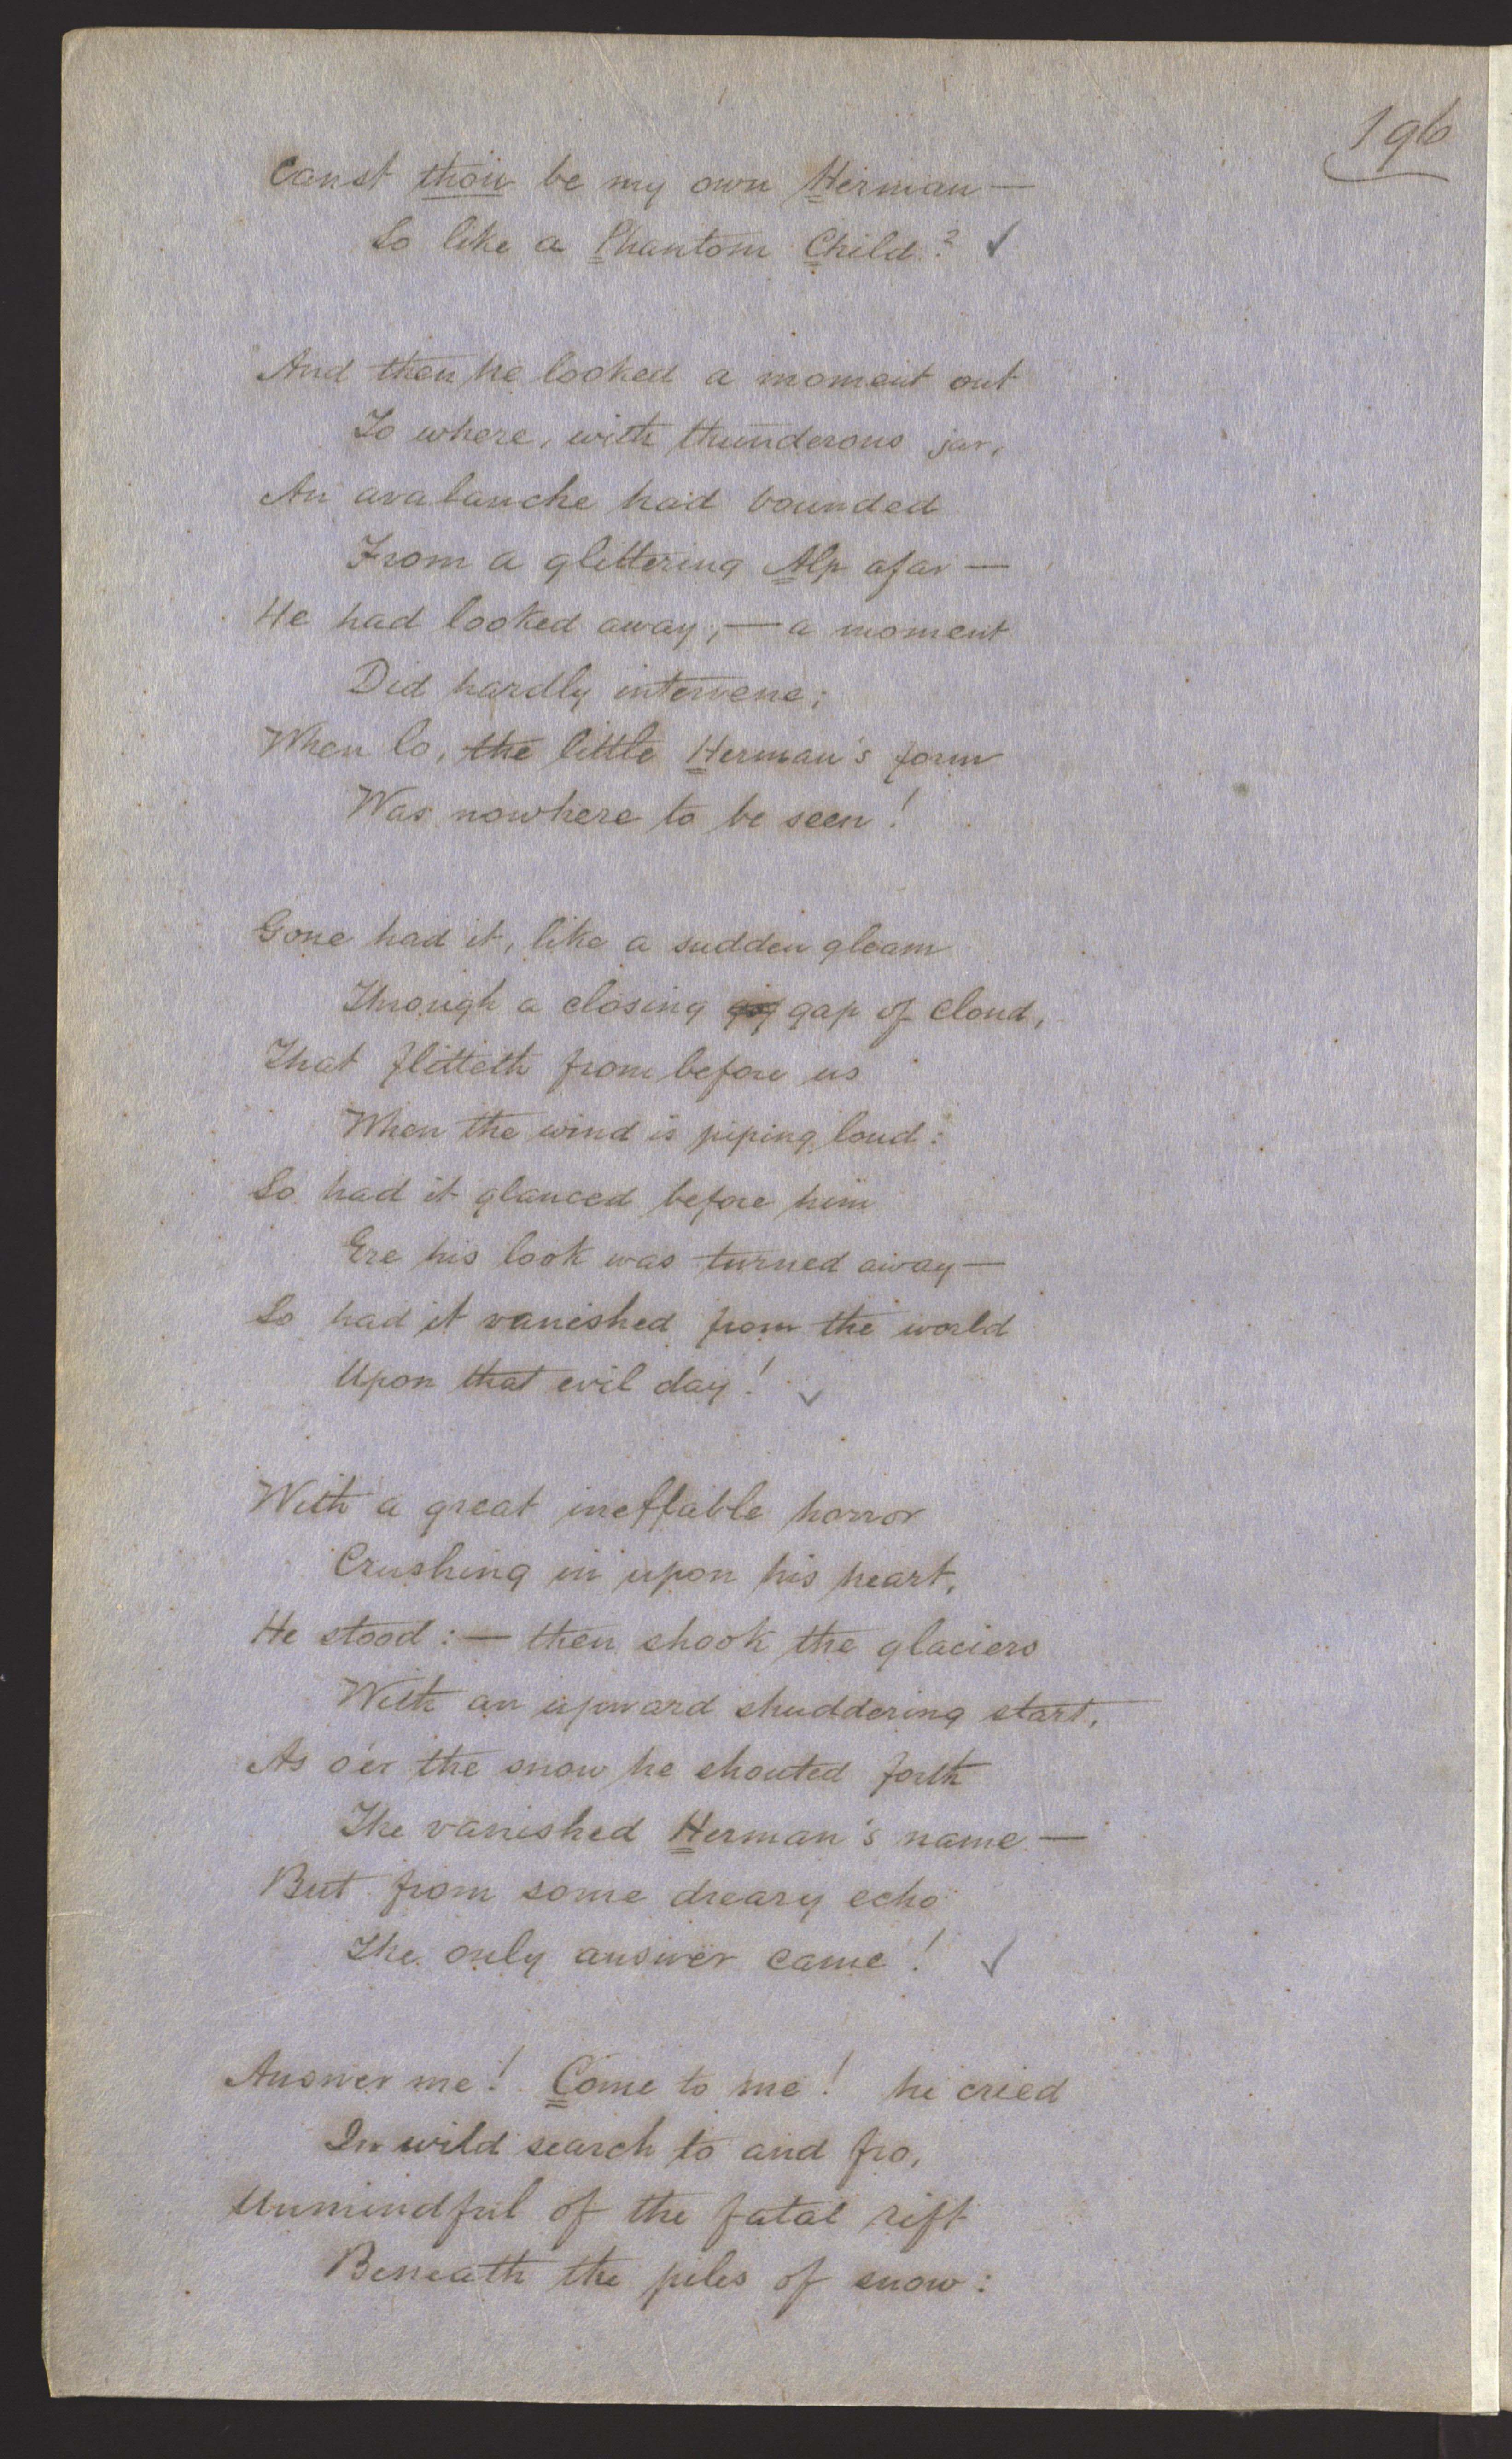 196
Canst thou be my own Herman—
So like a Phantom Child?
And then he looked a moment out
To where, with thunderous jar,
An avalanche had bounded
From a glittering Alp afar—
He had looked away;—a moment
Did hardly intervene;
When lo, the little Herman's form
Was nowhere to be seen!
Gone had it, like a sudden gleam
Through a closing gap of cloud,
That flitteth from before us
When the wind is piping loud:
So had it glanced before him
Ere his look was turned away—
So had it vanished from the world
Upon that evil day!
With a great ineffable horror
Crushing in upon his heart,
He stood:— then shook the glaciers
With an upward shuddering start,
As o'er the snow he shouted forth
The vanished Herman's name—
But from some dreary echo
The only answer came!
Answer me! Come to me! he cried
In wild search to and fro,
Unmindful of the fatal rift
Beneath the piles of snow: